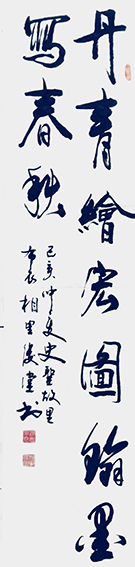 丹青繪宏圖翰墨
寫春秋
己亥仲夏史聖故里
布衣相里俊傑書